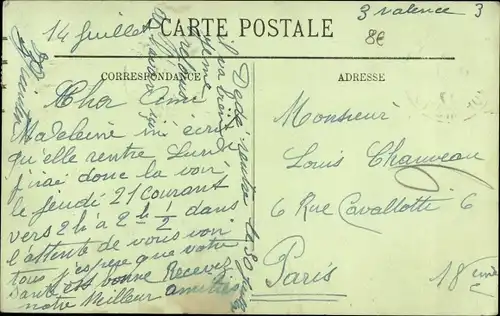 CARTE POSTALE
3 valence 3
8€
14 Juillet
CORRESPONDANCE
ADRESSE
Cher Ami
Madeleine m'écrit
qu'elle rentre Lundi
j'irai donc la voir
le jeudi 21 courant
vers 2 h à 2 h ½ dans
l'attente de vous voir
tous j'espère que votre
santé est bonne Recevez
notre meilleur amitiés
Dédé rentre le 30
Monsieur
Louis Chauveau
6 Rue Cavallotti 6
Paris
18eme